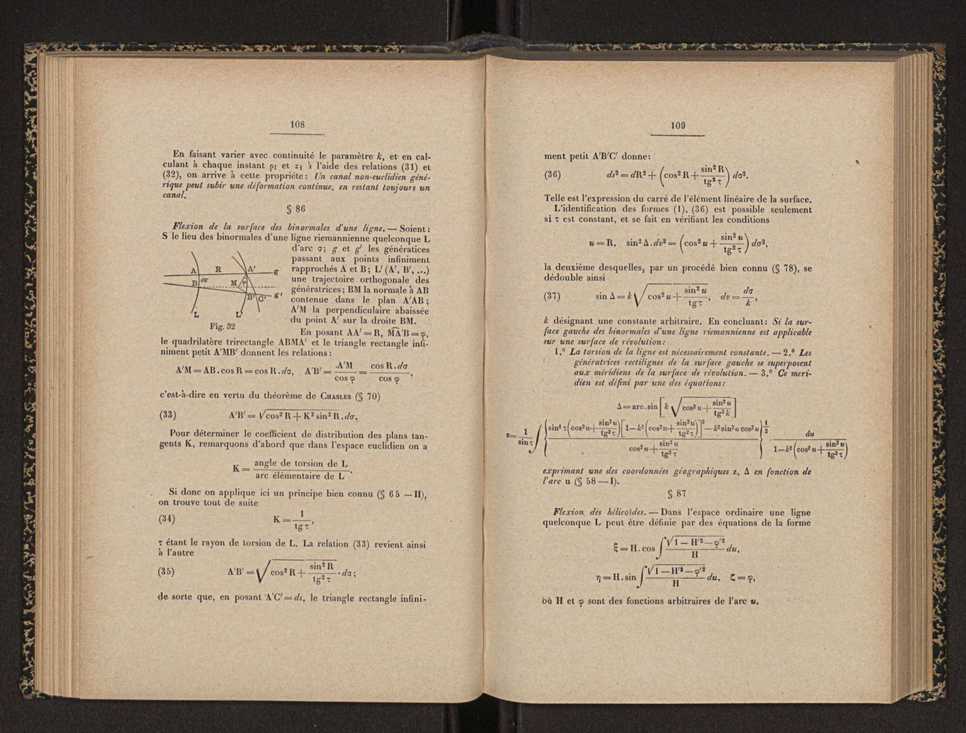 108
En faisant varier avec continuité le paramètre k, et en cal-
culant à chaque instant ρ₁ et z₁ à l'aide des relations (31) et
(32), on arrive à cette propriéte: Un canal non-euclidien géné-
rique peut subir une déformation continue, en restant toujours un
canal.
§ 86
Flexion de la surface des binormales d'une ligne. — Soient:
S le lieu des binormales d'une ligne riemannienne quelconque L
d'arc σ; g et g' les génératices
passant aux points infiniment
rapprochés A et B; L' (A', B', ...)
une trajectoire orthogonale des
génératrices; BM la normale à AB
contenue dans le plan A'AB;
A'M la perpendiculaire abaissée
du point A' sur la droite BM.
A R A' g
dσ
B M φ
B' C' g'
L L'
Fig. 32
En posant AA' = R, MA'B = φ,
le quadrilatère trirectangle ABMA' et le triangle rectangle infi-
niment petit A'MB' donnent les relations:
A'M = AB . cos R = cos R . dσ, A'B' = A'M / cos φ = cos R . dσ / cos φ,
c'est-à-dire en vertu du théorème de CHASLES (§ 70)
(33) A'B' = √cos² R + K² sin² R . dσ,
Pour déterminer le coefficient de distribution des plans tan-
gents K, remarquons d'abord que dans l'espace euclidien on a
K = angle de torsion de L / arc élémentaire de L.
Si donc on applique ici un principe bien connu (§ 65 — II),
on trouve tout de suite
(34) K = 1 / tg τ,
τ étant le rayon de torsion de L. La relation (33) revient ainsi
à l'autre
(35) A'B' = √cos² R + sin² R / tg² τ . dσ;
de sorte que, en posant A'C' = ds, le triangle rectangle infini-
109
ment petit A'B'C' donne:
(36) ds² = dR² + (cos² R + sin² R / tg² τ) dσ².
Telle est l'expression du carré de l'élément linéaire de la surface.
L'identification des formes (1), (36) est possible seulement
si τ est constant, et se fait en vérifiant les conditions
u = R, sin² Δ . dv² = (cos² u + sin² u / tg² τ) dσ²,
la deuxième desquelles, par un procédé bien connu (§ 78), se
dédouble ainsi
(37) sin Δ = k √cos² u + sin² u / tg τ, dv = dσ / k,
k désignant une constante arbitraire. En concluant: Si la sur-
face gauche des binormales d'une ligne riemannienne est applicable
sur une surface de révolution:
1.° La torsion de la ligne est nécessairement constante. — 2.° Les
génératrices rectilignes de la surface gauche se superposent
aux méridiens de la surface de révolution. — 3.° Ce meri-
dien est défini par une des équations:
Δ = arc. sin [k √cos² u + sin² u / tg² k]
z = 1 / sin τ ∫ {sin² τ (cos² u + sin² u / tg² τ) [1 — k² (cos² u + sin² u / tg² τ)]² — k² sin² u cos² u / cos² u + sin² u / tg² τ}^1/2 du / 1 — k² (cos² u + sin² u / tg² τ)
exprimant une des coordonnées géographiques z, Δ en fonction de
l'arc u (§ 58 — I).
§ 87
Flexion des hélicoïdes. — Dans l'espace ordinaire une ligne
quelconque L peut être définie par des équations de la forme
ξ = H . cos ∫ √1 — H'² — φ'² / H du,
η = H . sin ∫ √1 — H'² — φ'² / H du, ζ = φ,
où H et φ sont des fonctions arbitraires de l'arc u.